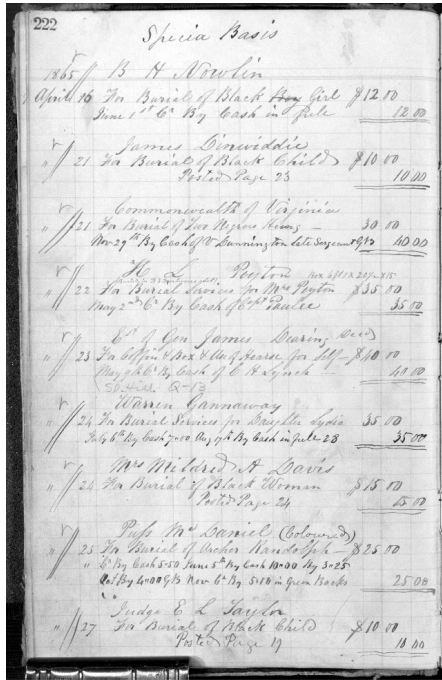 222
Specia Basis
1865 B H Nowlin
April 16 For Burial of Black Boy Girl $12 00
June 1st Cr By Cash in full 12 00
James Dinwiddie
" 21 For Burial of Black Child $10 00
Posted Page 23 10 00
Commonwealth of Virginia
" 21 For Burial of Two Negroes Hung 30 00
Nov 29th By Cash of V Dunnington late Sergeant 40 00
H L Peyton
" 22 For Burial Services for Mrs Peyton $35 00
May 2nd Cr By Cash of 35 00
Es of Gen James Dearing Decd
" 23 For Coffin & Box & Use of Hearse for Self $40 00
May Cr By Cash of C H Lynch 40 00
Q-13
Warren Gannaway
" 24 For Burial Services for Daughter Lydia 35 00
July 6th By Cash 7=00 Aug 17th By Cash in full 28 35 00
Mrs Mildred A Davis
" 24 For Burial of Black Woman $15 00
Posted Page 24 15 00
Puss McDaniel (Coloured)
" 25 For Burial of Archer Randolph $25 00
" Cr By Cash 5-50 June 5th By Cash 10=00 By 3=25
Oct By 4=00 Nov Cr By 5=00 in Green Backs 25 00
Judge E L Taylor
" 27 For Burial of Black Child $10 00
Posted Page 19 10 00